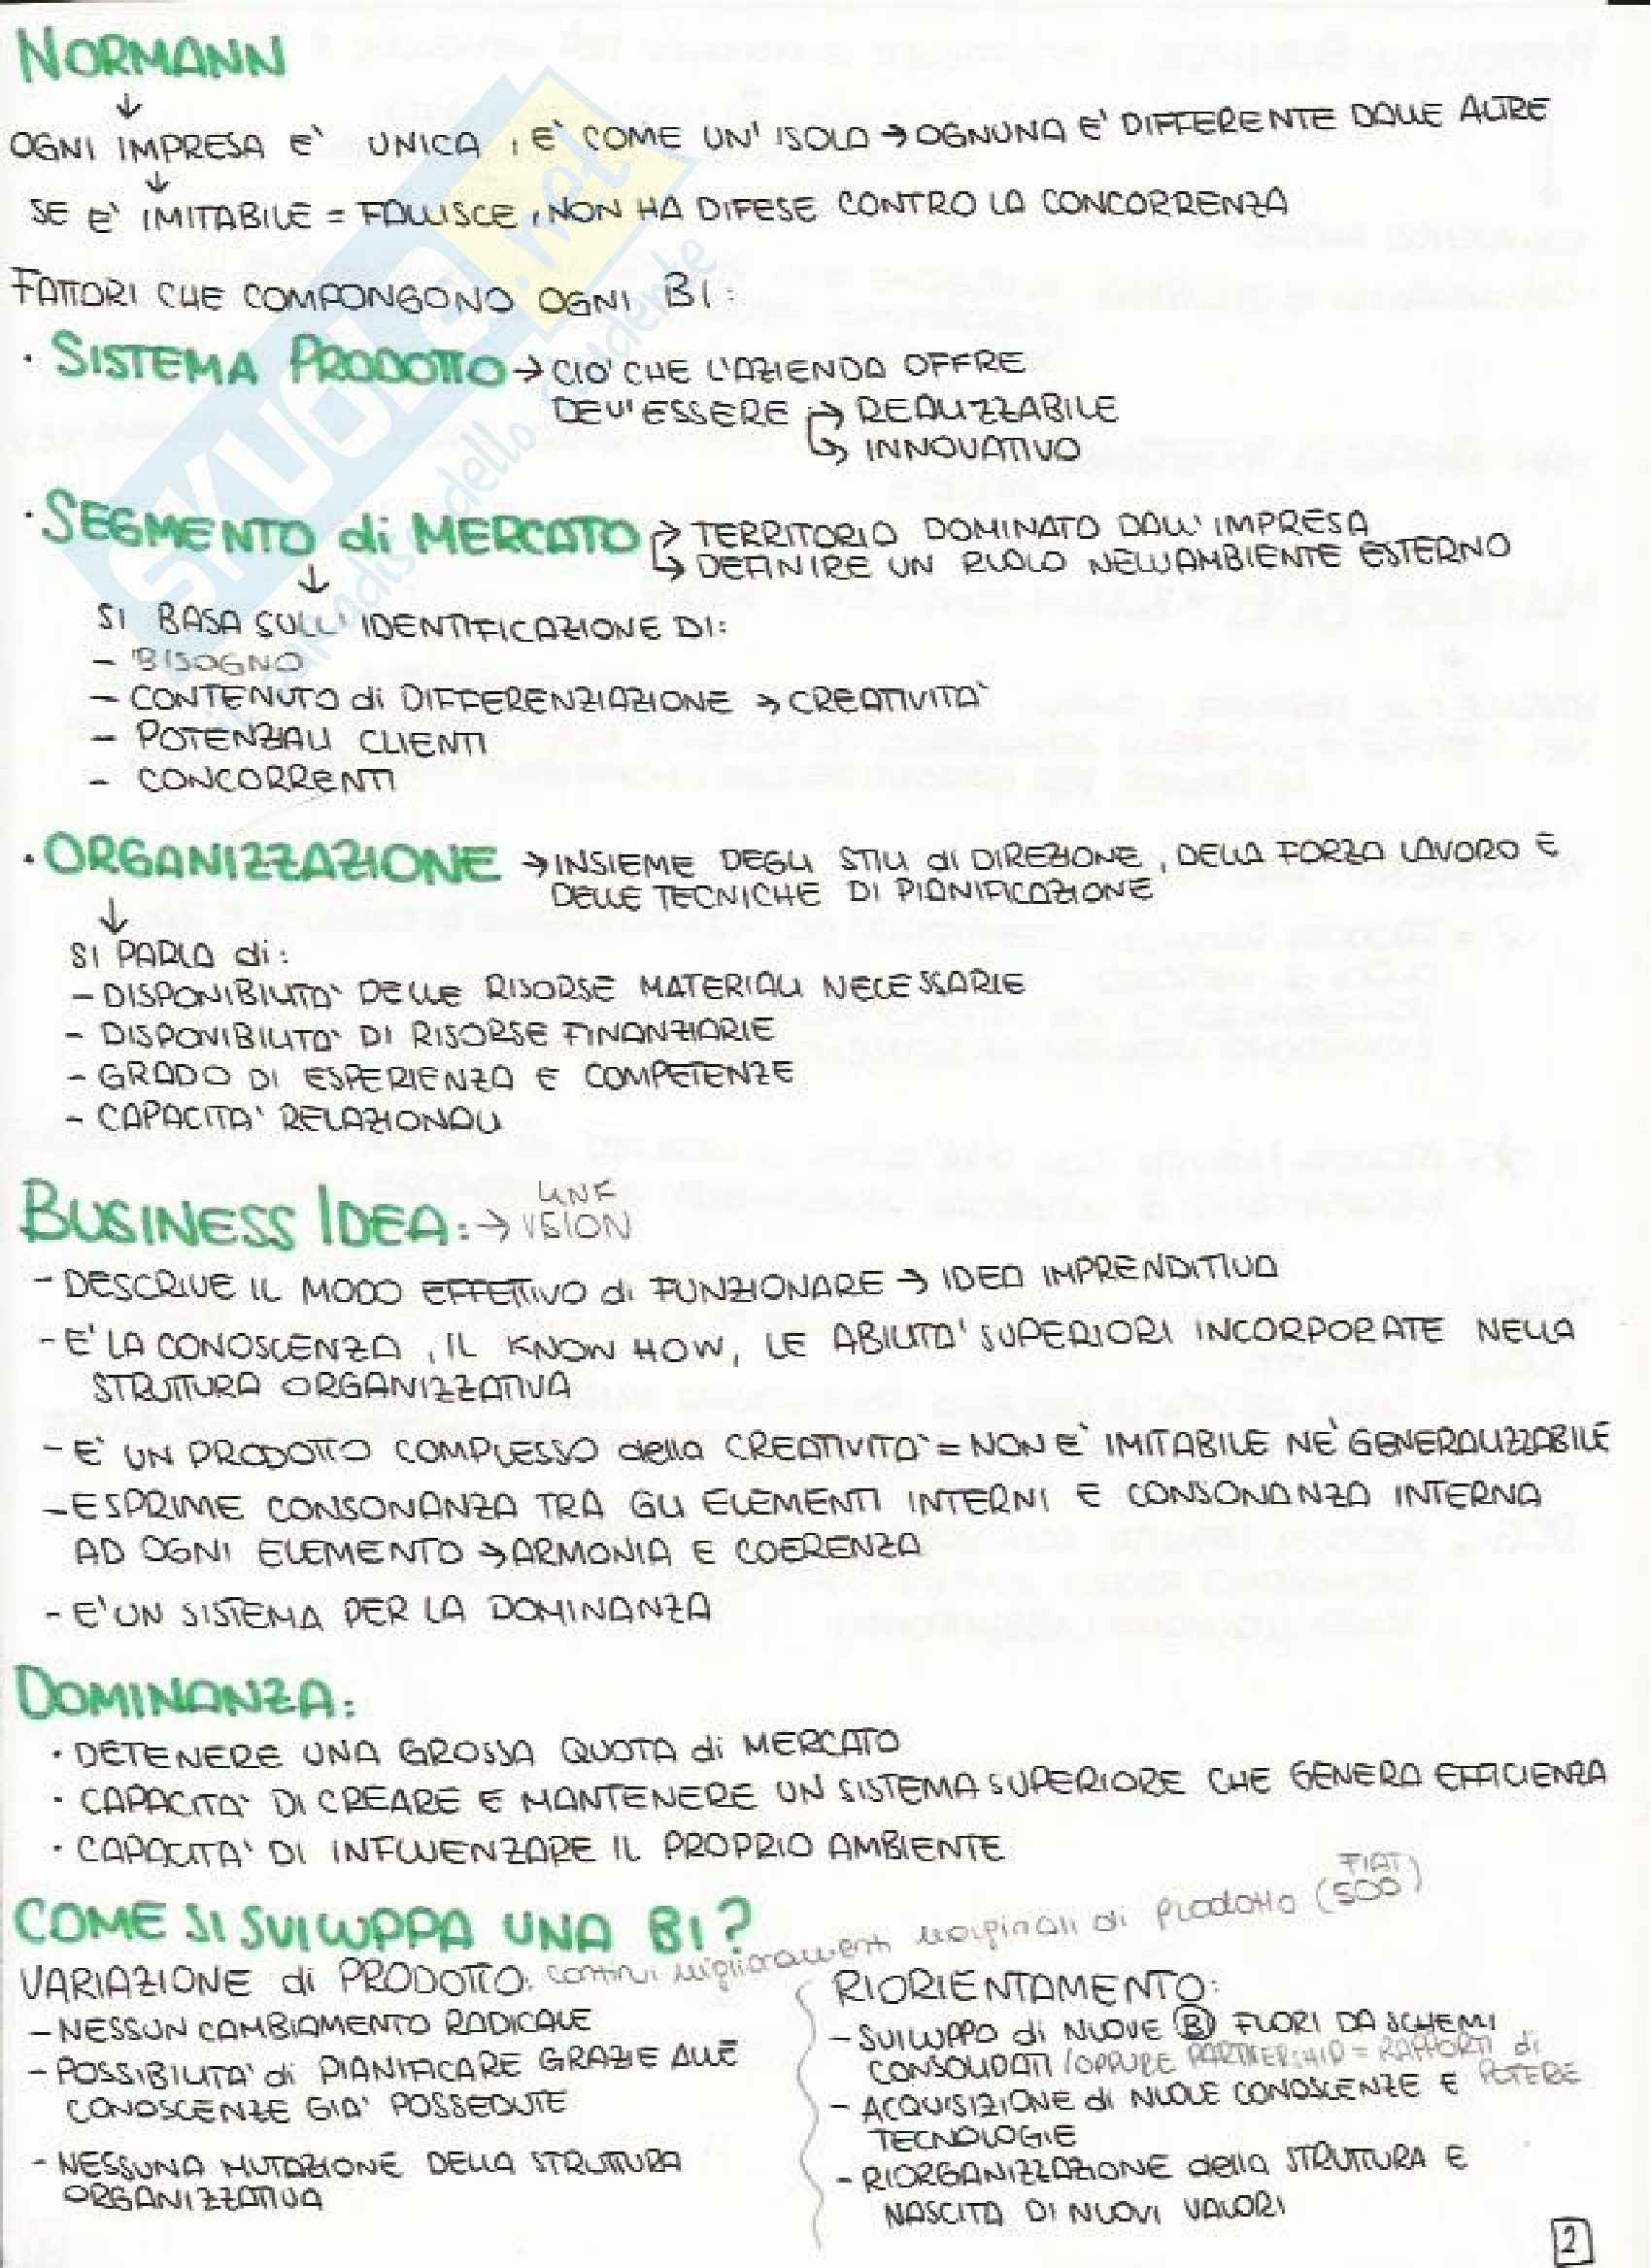 NORMANN
↓
OGNI IMPRESA E' UNICA, E' COME UN'ISOLA → OGNUNA E' DIFFERENTE DALLE ALTRE
↓
SE E' IMITABILE = FALLISCE, NON HA DIFESE CONTRO LA CONCORRENZA
FATTORI CHE COMPONGONO OGNI BI:
· SISTEMA PRODOTTO → CIO' CHE L'AZIENDA OFFRE
DEV'ESSERE → REALIZZABILE
↳ INNOVATIVO
· SEGMENTO di MERCATO → TERRITORIO DOMINATO DALL'IMPRESA
↳ DEFINIRE UN RUOLO NELL'AMBIENTE ESTERNO
↓
SI BASA SULL'IDENTIFICAZIONE DI:
- BISOGNO
- CONTENUTO di DIFFERENZIAZIONE → CREATIVITA'
- POTENZIALI CLIENTI
- CONCORRENTI
· ORGANIZZAZIONE → INSIEME DEGLI STILI di DIREZIONE, DELLA FORZA LAVORO E
DELLE TECNICHE DI PIANIFICAZIONE
↓
SI PARLA di:
- DISPONIBILITA' DELLE RISORSE MATERIALI NECESSARIE
- DISPONIBILITA' DI RISORSE FINANZIARIE
- GRADO DI ESPERIENZA E COMPETENZE
- CAPACITA' RELAZIONALI
BUSINESS IDEA: → VISION
- DESCRIVE IL MODO EFFETTIVO di FUNZIONARE → IDEA IMPRENDITIVA
- E' LA CONOSCENZA, IL KNOW HOW, LE ABILITA' SUPERIORI INCORPORATE NELLA
STRUTTURA ORGANIZZATIVA
- E' UN PRODOTTO COMPLESSO della CREATIVITA' = NON E' IMITABILE NE' GENERALIZZABILE
- ESPRIME CONSONANZA TRA GLI ELEMENTI INTERNI E CONSONANZA INTERNA
AD OGNI ELEMENTO → ARMONIA E COERENZA
- E' UN SISTEMA PER LA DOMINANZA
DOMINANZA:
· DETENERE UNA GROSSA QUOTA di MERCATO
· CAPACITA' DI CREARE E MANTENERE UN SISTEMA SUPERIORE CHE GENERA EFFICIENZA
· CAPACITA' DI INFLUENZARE IL PROPRIO AMBIENTE
COME SI SVILUPPA UNA BI?
VARIAZIONE di PRODOTTO: continui miglioramenti marginali di prodotto (FIAT 500)
- NESSUN CAMBIAMENTO RADICALE
- POSSIBILITA' di PIANIFICARE GRAZIE ALLE
CONOSCENZE GIA' POSSEDUTE
- NESSUNA MUTAZIONE DELLA STRUTTURA
ORGANIZZATIVA
RIORIENTAMENTO:
- SVILUPPO di NUOVE BI FUORI DA SCHEMI
CONSOLIDATI / OPPURE PARTNERSHIP = RAPPORTI di
POTERE
- ACQUISIZIONE di NUOVE CONOSCENZE E
TECNOLOGIE
- RIORGANIZZAZIONE della STRUTTURA E
NASCITA DI NUOVI VALORI
2
SKUOLA.net
il paradiso dello studente